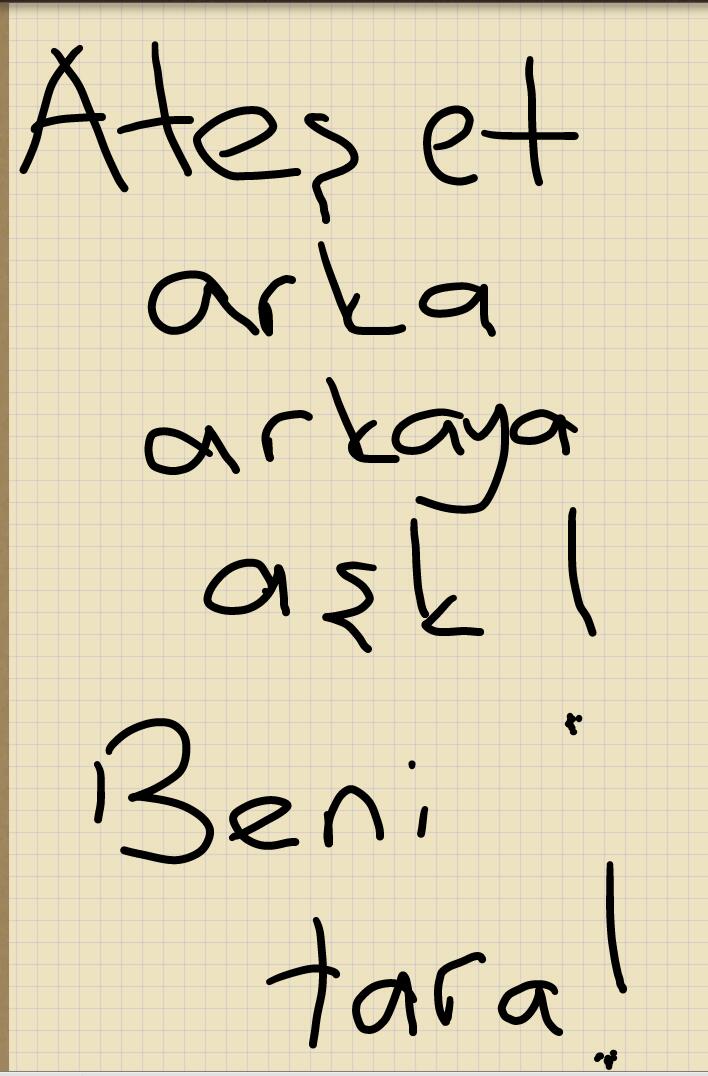 Ateş et
arka
arkaya
aşk!
Beni
tara!